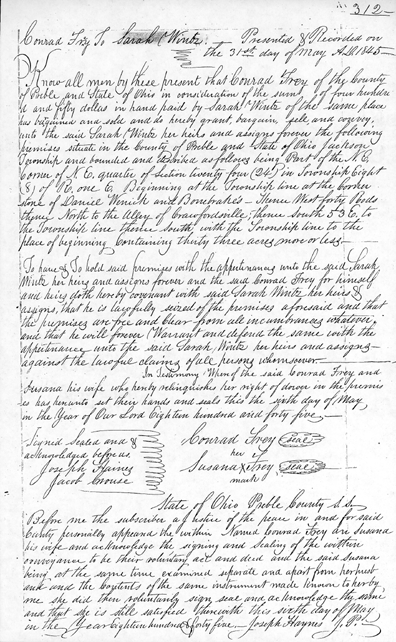 312
Conrad Frey To Sarah Wintz. Presented & Recorded on
the 31st day of May A.D. 1845
Know all men by these present that Conrad Frey of the County
of Preble and State of Ohio in consideration of the sum of four hundre
d and fifty dollars in hand paid by Sarah Wintz of the same place
has bargained and sold and do hereby grant, bargain, sell, and convey,
unto the said Sarah Wintz her heirs and assigns forever the following
premises situate in the County of Preble and State of Ohio Jackson
Township and bounded and described as follows being Part of the N.E.
Corner of N.E. quarter of Section twenty four (24) in Township Eight
(8) of R. one E. Beginning at the Township line at the corner
stone of Daniel Wenick and Bonebrakes - Thence West forty Rods
thence North to the Alley of Crawfordsville; thence South 53 E. to
the Township line thence South, with the Township line to the
place of beginning Containing thirty three acres, more or less
To have & To hold said premises with the appertenances unto the said Sarah
Wintz her heirs and assigns forever and the said Conrad Frey for himself
and heirs doth hereby covenant with said Sarah Wintz her heirs &
assigns, that he is lawfully seized of the premises aforesaid and that
the premises are free and clear from all incumbrances whatever;
and that he will forever Warrant and defend the same with the
appertenance unto the said Sarah Wintz her heirs and assigns
against the lawful claims of all persons whomsoever.
In Testimony When of the said Conrad Frey and
Susana his wife who hereby relinquishes her right of dower in the premis
es has hereunto set their hands and seals this the sixth day of May
in the Year of Our Lord Eighteen hundred and forty five
Signed Sealed and
acknowledged before us
Joseph Haines
Jacob Crouse
Conrad Frey seal
her
Susana X Frey seal
mark
State of Ohio Preble County S.S.
Before me the subscriber a justice of the peace in and for said
County personally appeared the within Named Conrad Frey and Susana
his wife and acknowledge the signing and Sealing of the within
conveyance to be their voluntary act and deed and the said Susana
being at the same time examined separate and apart from her husb
and and the contents of the same instrument made known to her by
me she did then voluntarily sign seal and acknowledge the same
and that she is still satisfied therewith this sixth day of May
in the Year Eighteen hundred & forty five. Joseph Haynes J.P.